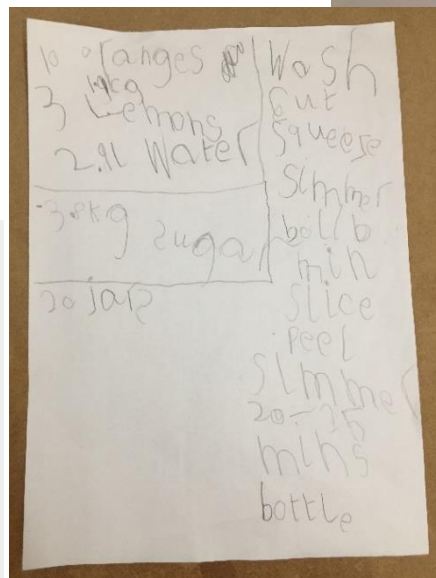 10 oranges
1.9kg
3 Lemons
2.9L Water
3.8kg
sugar
20 jars
Wash
Cut
squeese
simmer
boil 6
min
slice
peel
simmer
20-25
mins
bottle